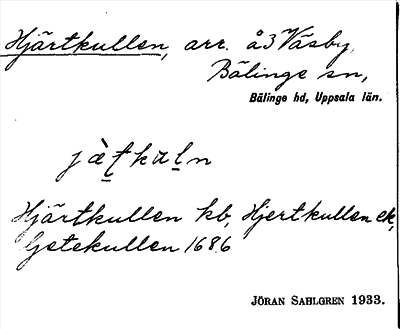 Hjärtkullen, arr. å 3 Väsby,
Bälinge sn,
Bälinge hd, Uppsala län.
jä̀t̠kul̠n
Hjärtkullen kb, Hjertkullen ek,
Getekullen 1686
JÖRAN SAHLGREN 1933.